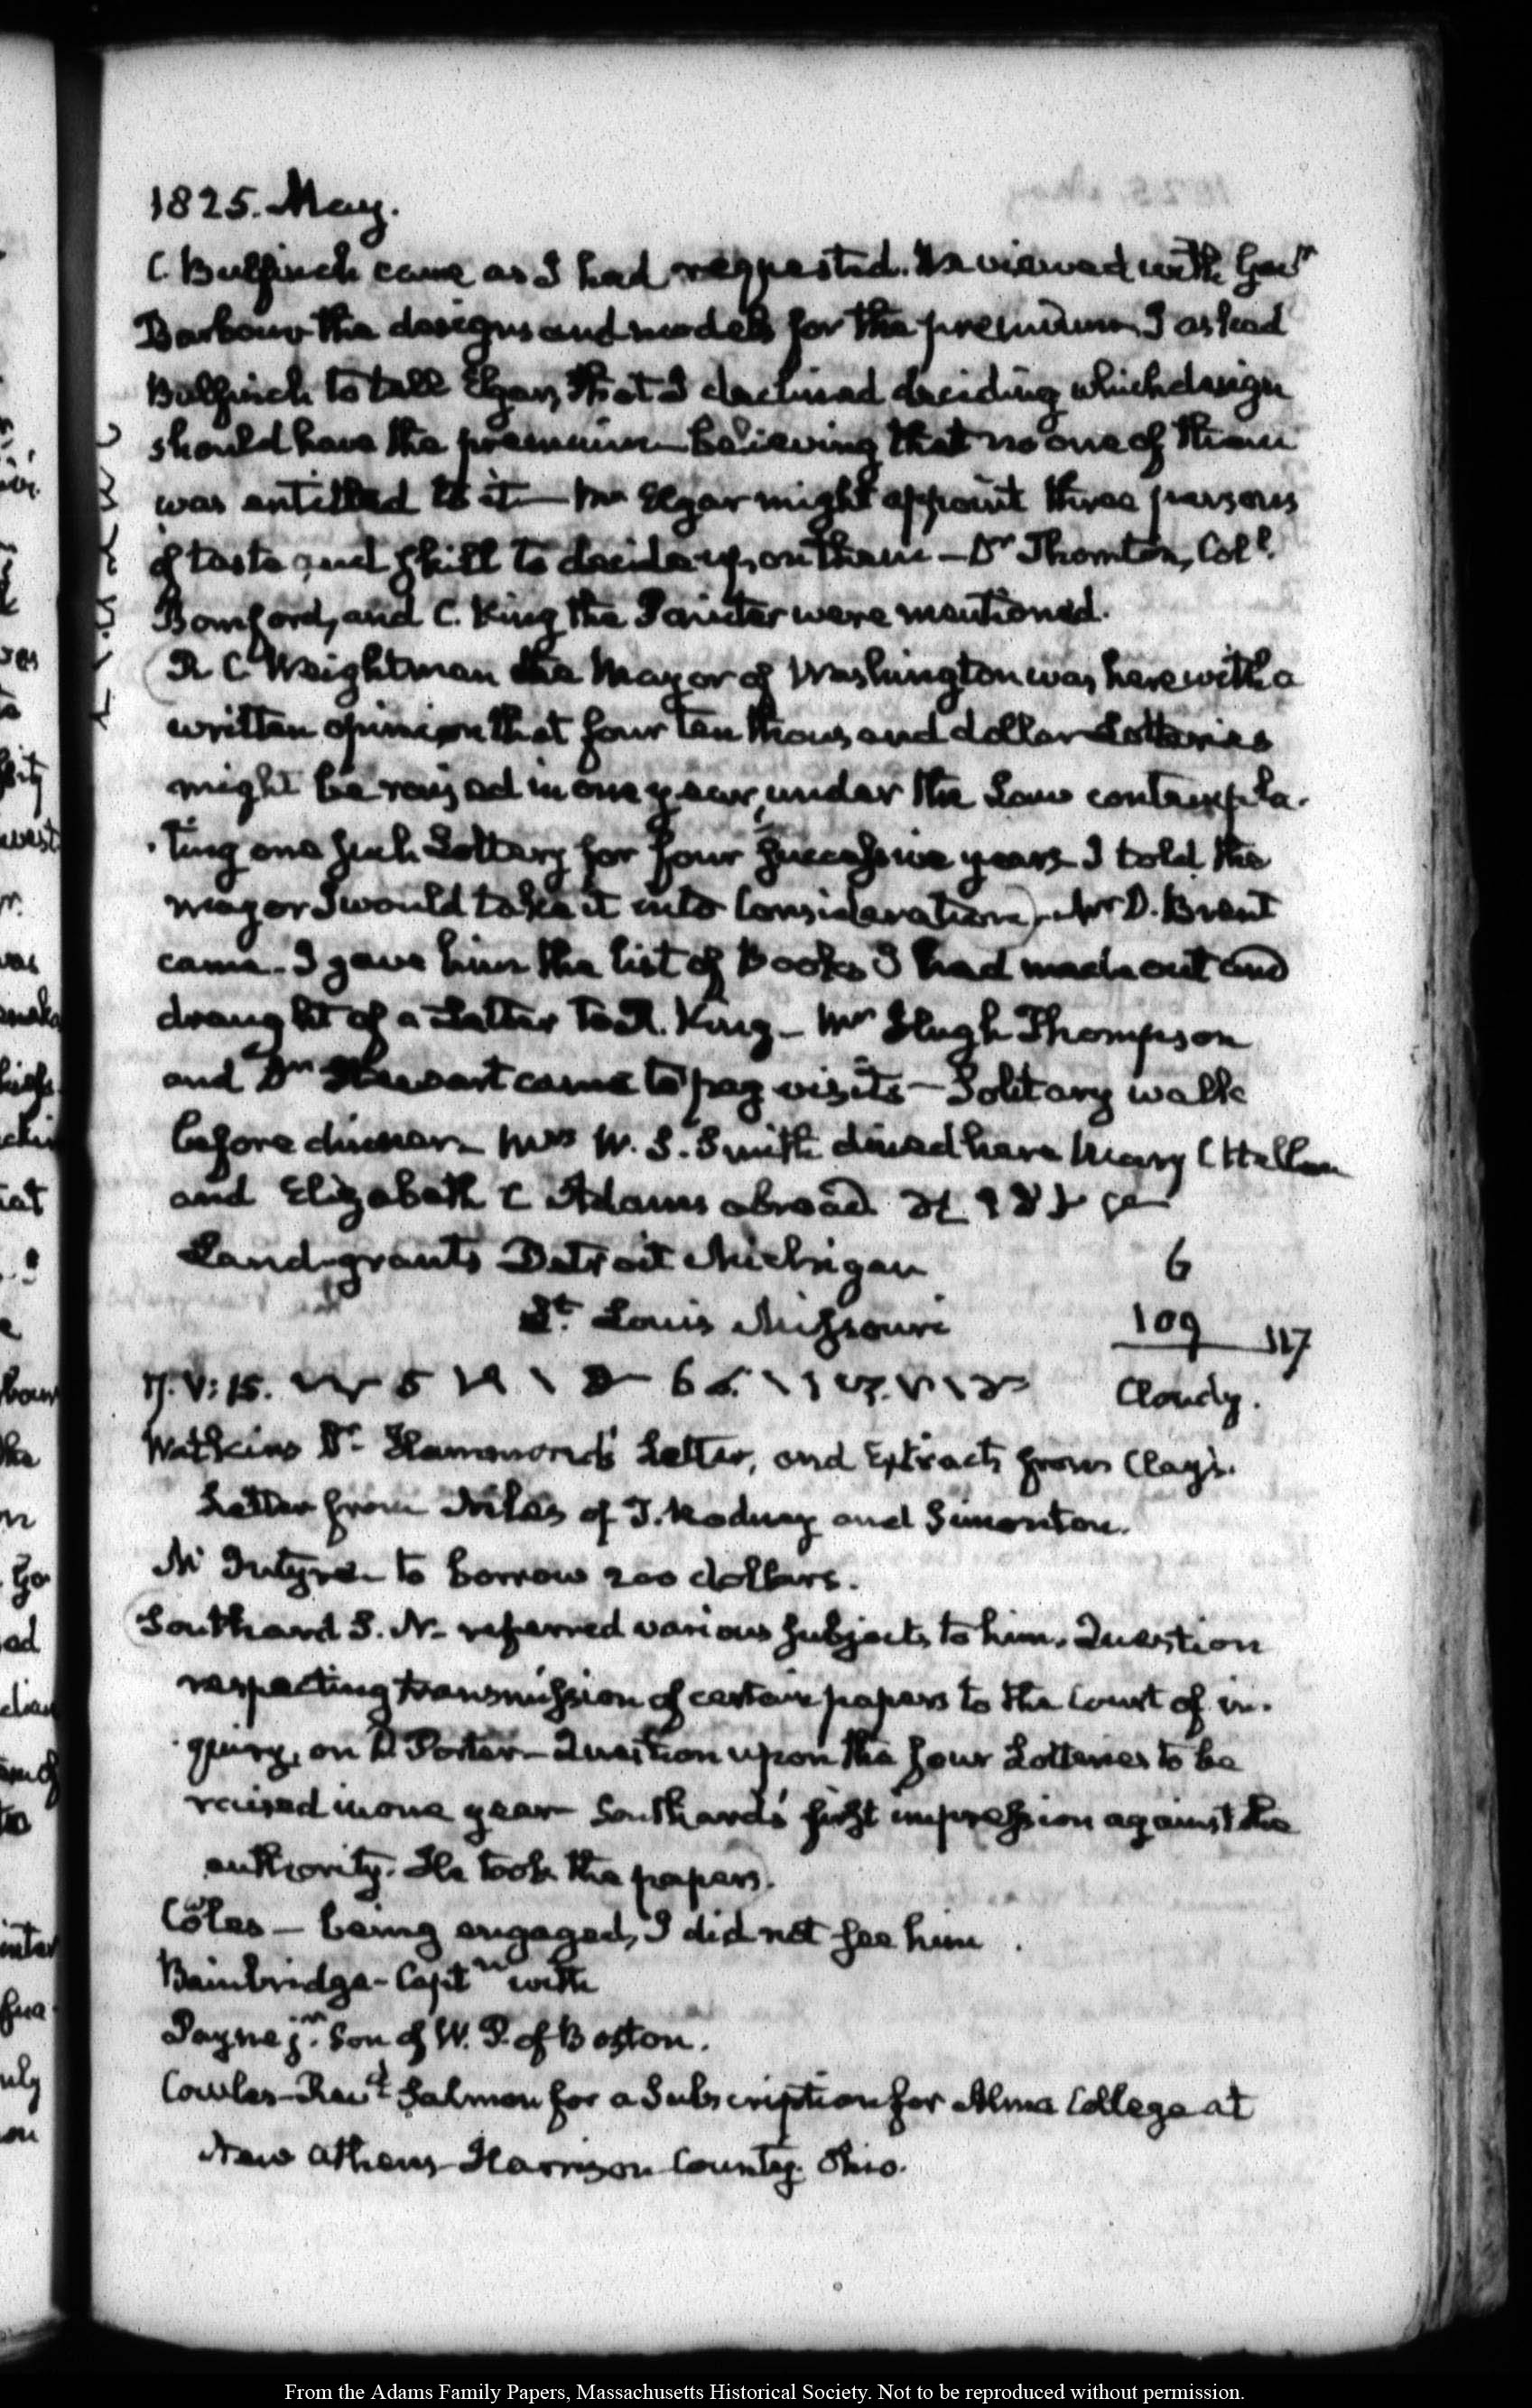 1825. May.
C Bulfinch came as I had requested. We viewed with Govr
Barbour the designs and models for the premium I asked
Bulfinch to tell Elgar, that I declined deciding which design
should have the premium believing that no one of them
was entitled to it — Mr Elgar might appoint three persons
of taste and skill to decide upon them — Dr Thornton, Coll.
Bomford, and C. King the Painter were mentioned.
(R C Weightman the Mayor of Washington was here with a
written opinion that four ten thousand dollar Lotteries
might be raised in one year, under the Law contempla-
ting one such Lottery for four successive years I told the
mayor I would take it into Consideration) Mr D. Brent
came. I gave him the list of Books I had made out and
draught of a Letter to R. King — Mr Hugh Thompson
and Dr Stewart came to pay visits — Solitary walk
before dinner — Mrs W. S. Smith dined here Mary C Hellen
and Elizabeth C Adams abroad.
Land-grants Detroit Michigan 6
St. Louis Missouri 109 117
V: 15. Cloudy.
Watkins Dr. Hammond's Letter, and Extracts from Clay's.
Letter from Niles of T. Rodney and Simonton.
McIntyre — to borrow 200 dollars.
(Southard S. N. — referred various subjects to him. Question
respecting transmission of certain papers to the Court of in-
quiry, on D Porter — Question upon the four Lotteries to be
raised in one year — Southard's first impression against the
authority. He took the papers).
Coles — being engaged, I did not see him.
Bainbridge — Captn with
Payne jr. Son of W. P. of Boston.
Cowles — Revd Salmon for a Subscription for Alma College at
New Athens Harrison County. Ohio.
From the Adams Family Papers, Massachusetts Historical Society. Not to be reproduced without permission.